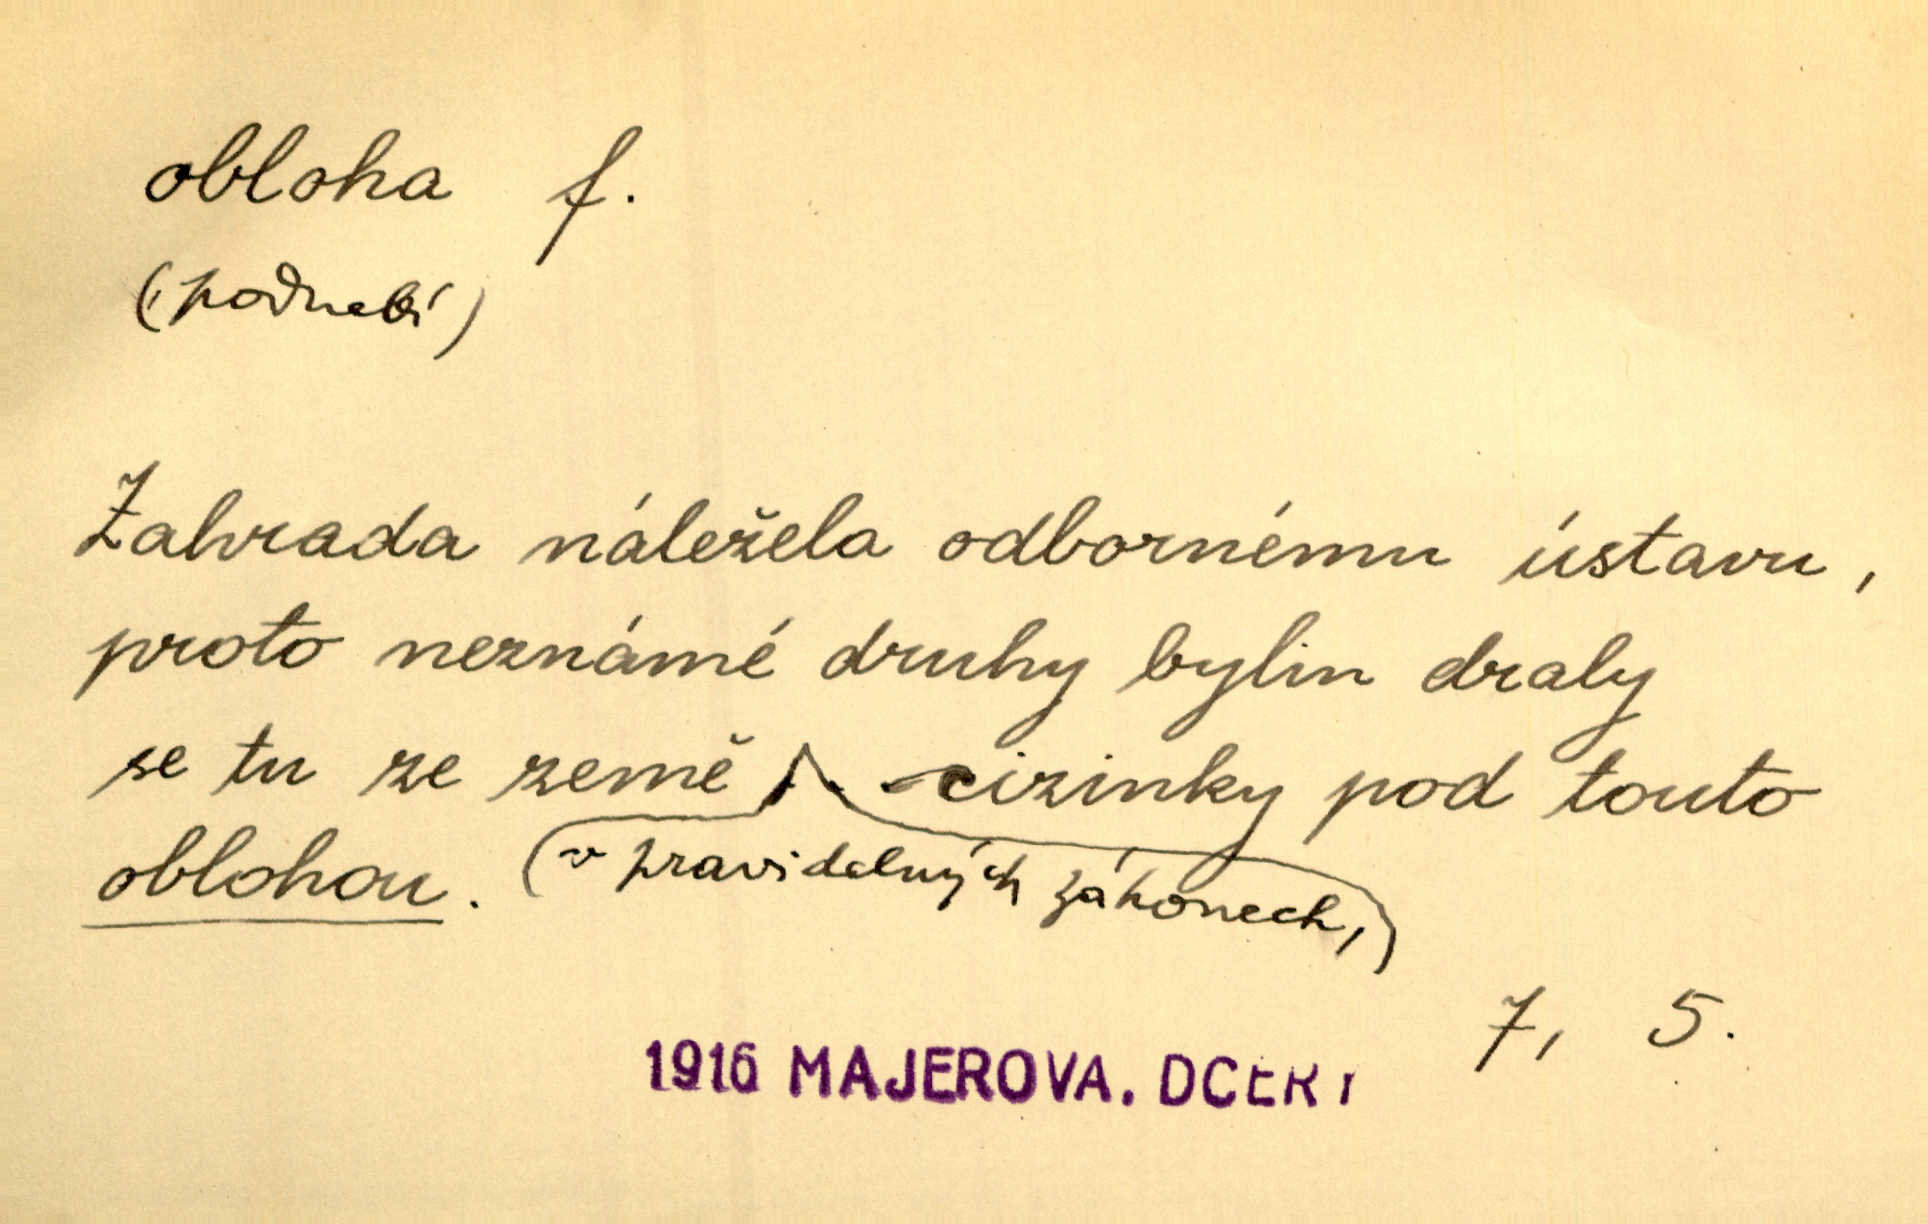 obloha f.
(podnebí)
Zahrada náležela odbornému ústavu,
proto neznámé druhy bylin draly
se tu ze země cizinky pod touto
oblohou. (v pravidelných záhonech,)
7, 5.
1916 MAJEROVA. DCERY